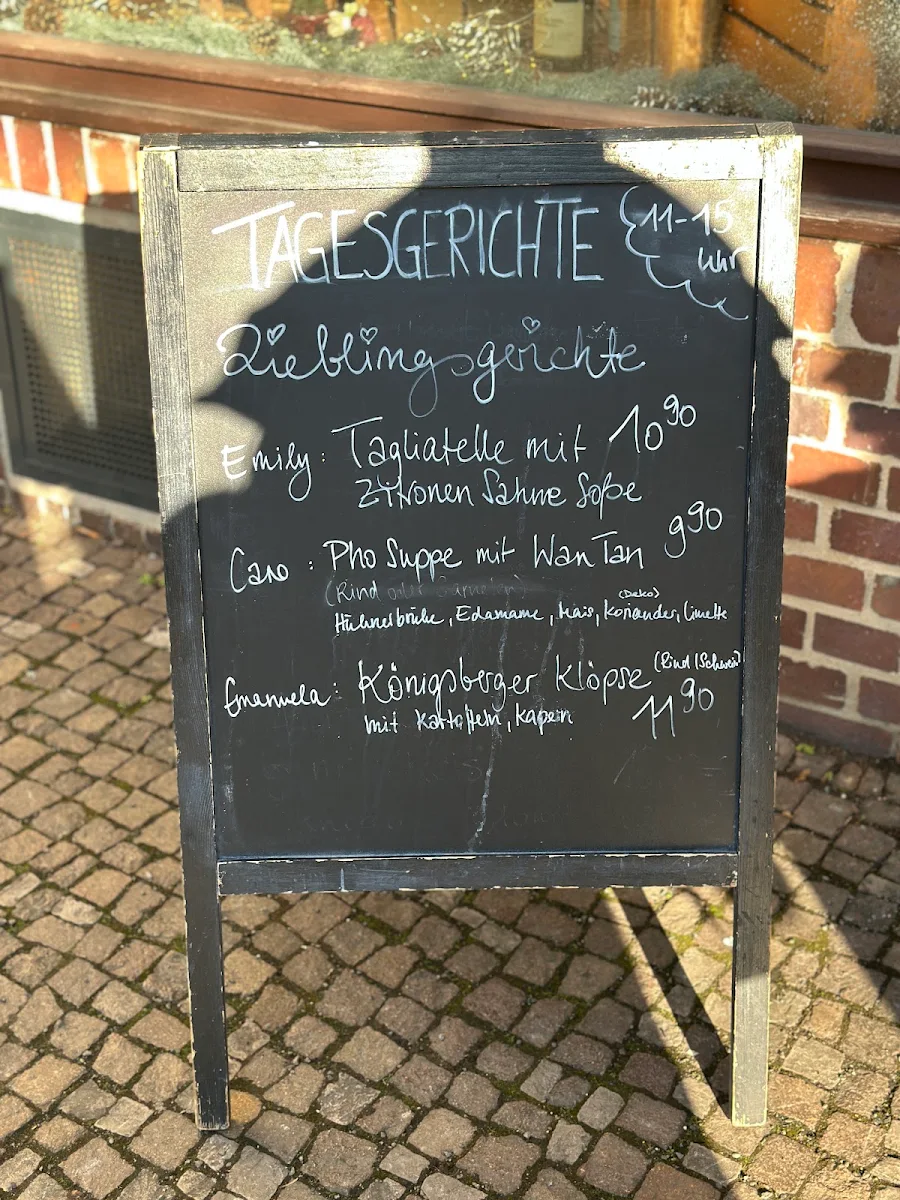 TAGESGERICHTE 11-15 Uhr
Lieblingsgerichte
Emily: Tagliatelle mit 10 90
Zitronen Sahne Soße
Caro: Pho Suppe mit WanTan 9 90
(Rind oder Garnelen)
(Deko)
Hühnerbrühe, Edamame, Mais, Koriander, Limette
Emanuela: Königsberger Klöpse (Rind/Schwein)
mit Kartoffeln, Kapern 11 90